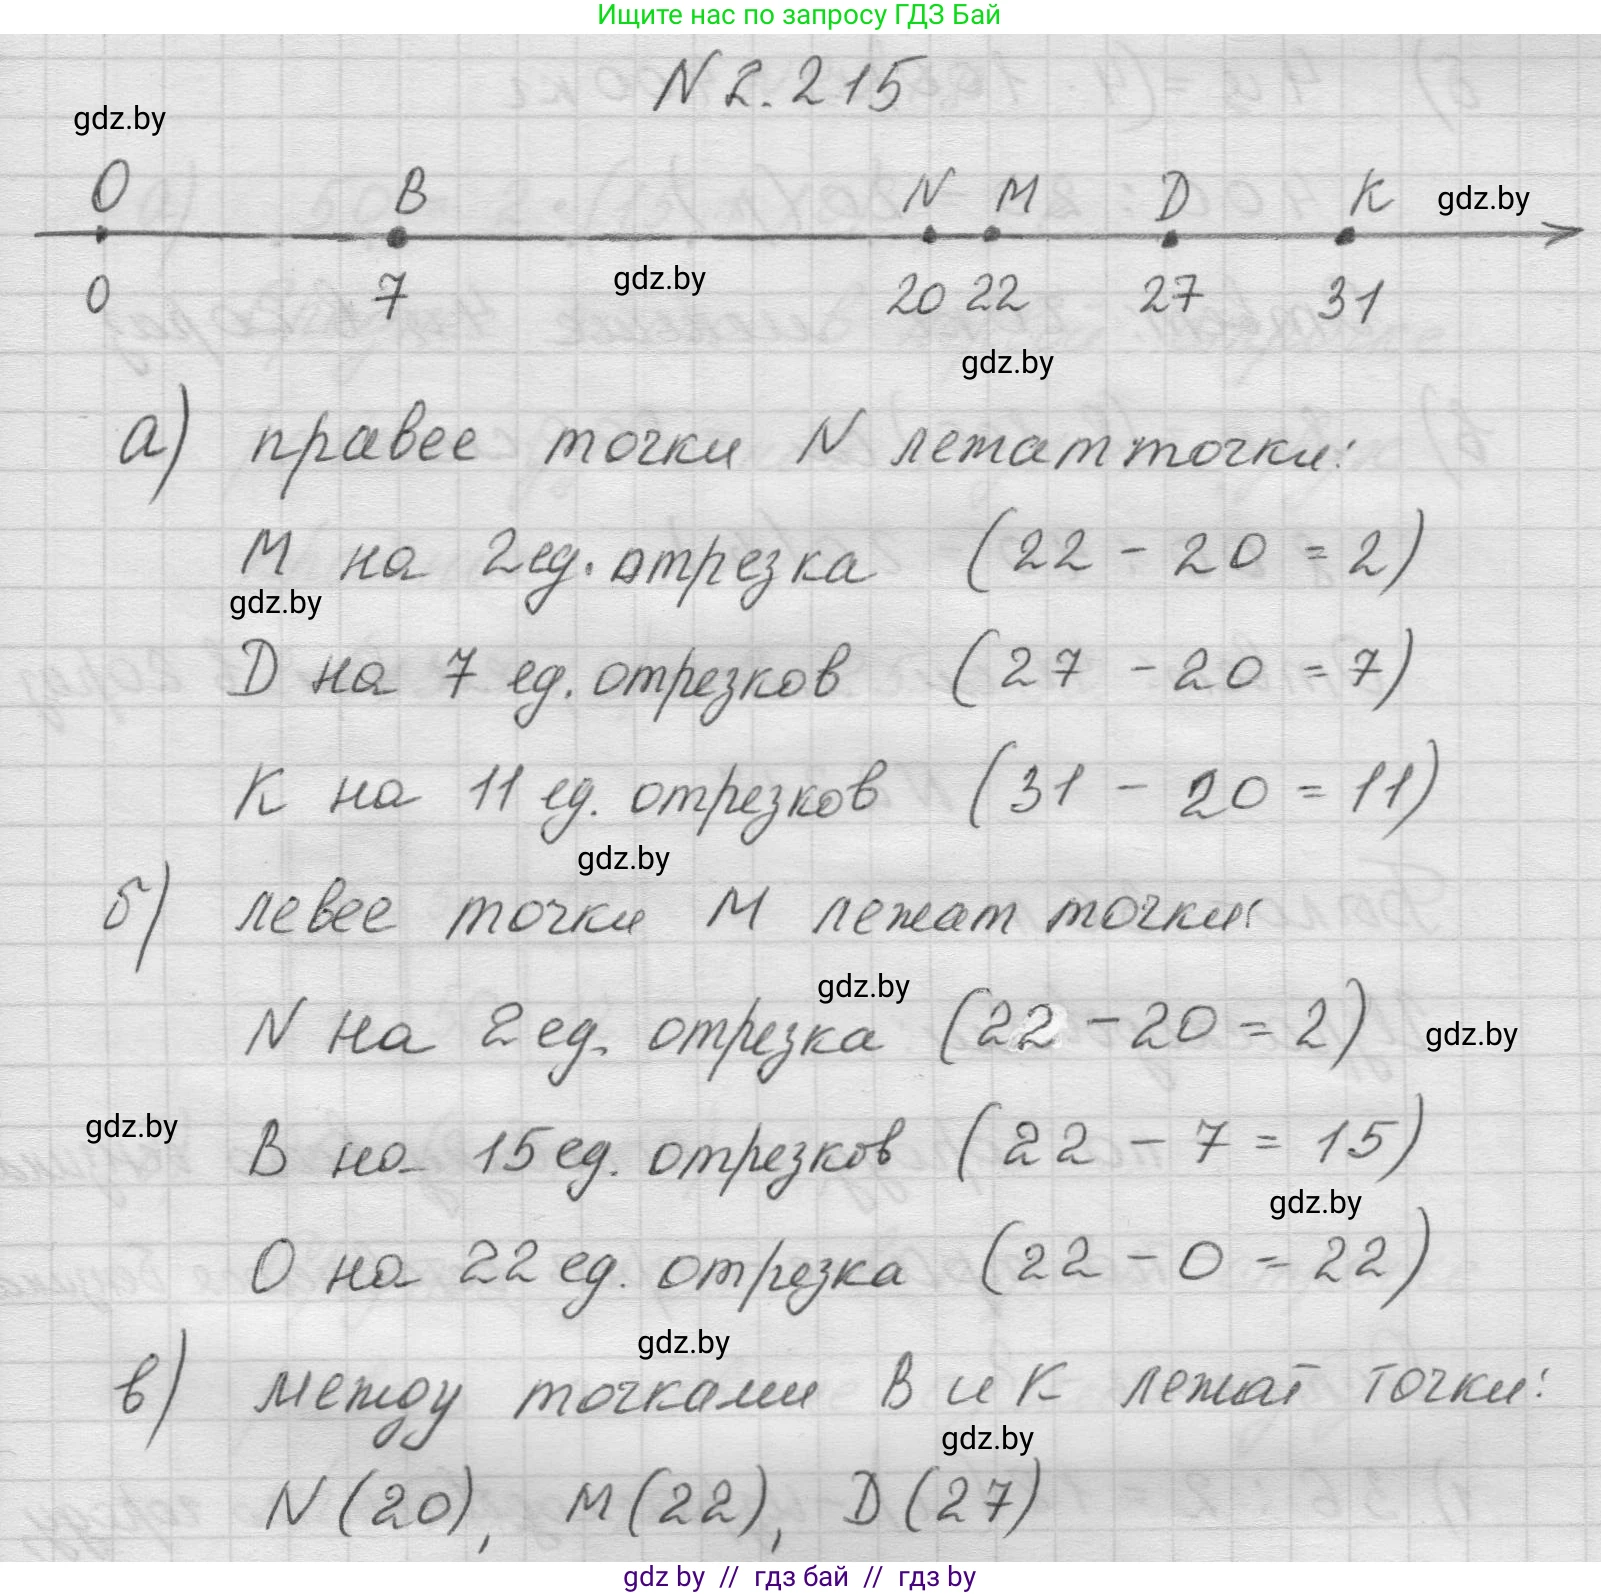 Ищите нас по запросу ГДЗ Бай
N 2.215
gdz.by
O B N M D K gdz.by
0 7 gdz.by 20 22 27 31
gdz.by
а) правее точки N лежат точки:
M на 2 ед. отрезка (22 - 20 = 2)
gdz.by
D на 7 ед. отрезков (27 - 20 = 7)
K на 11 ед. отрезков (31 - 20 = 11)
gdz.by
б) левее точки M лежат точки:
gdz.by
N на 2 ед. отрезка (22 - 20 = 2) gdz.by
gdz.by
B на 15 ед. отрезков (22 - 7 = 15)
gdz.by
O на 22 ед. отрезка (22 - 0 = 22)
gdz.by
в) между точками B и K лежат точки:
gdz.by
N (20), M (22), D (27)
gdz.by // гдз бай // гдз by